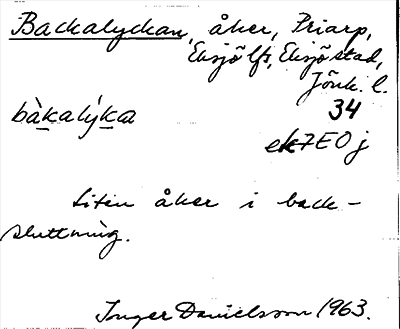 Backalyckan, åker, Priarp,
Eksjö lfs, Eksjö stad,
Jönk. l.
bàkalýka 34
ek7EOj
Liten åker i back-
sluttning.
Inger Danielsson 1963.